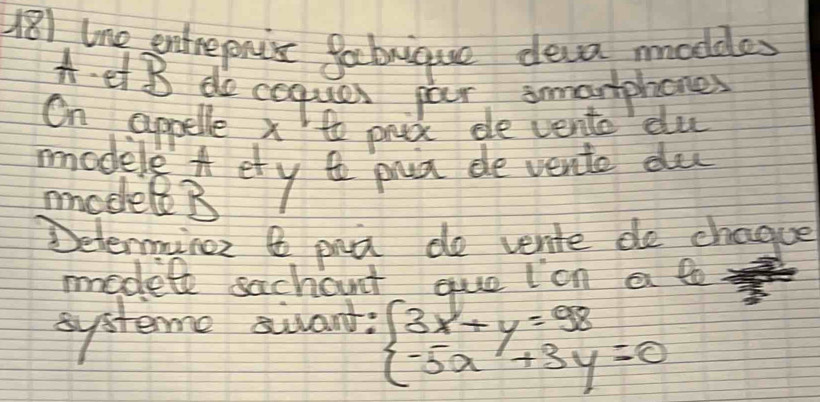 18) Une entreprise fabrique deux modèles
A et B de coques pour smartphones
On appelle x le prix de vente du
modèle A et y le prix de vente du
modele B
Determinez le prix de vente de chaque
modèle sachant que l'on a le
systeme suivant: { 3x + y = 98
{ -5x + 3y = 0